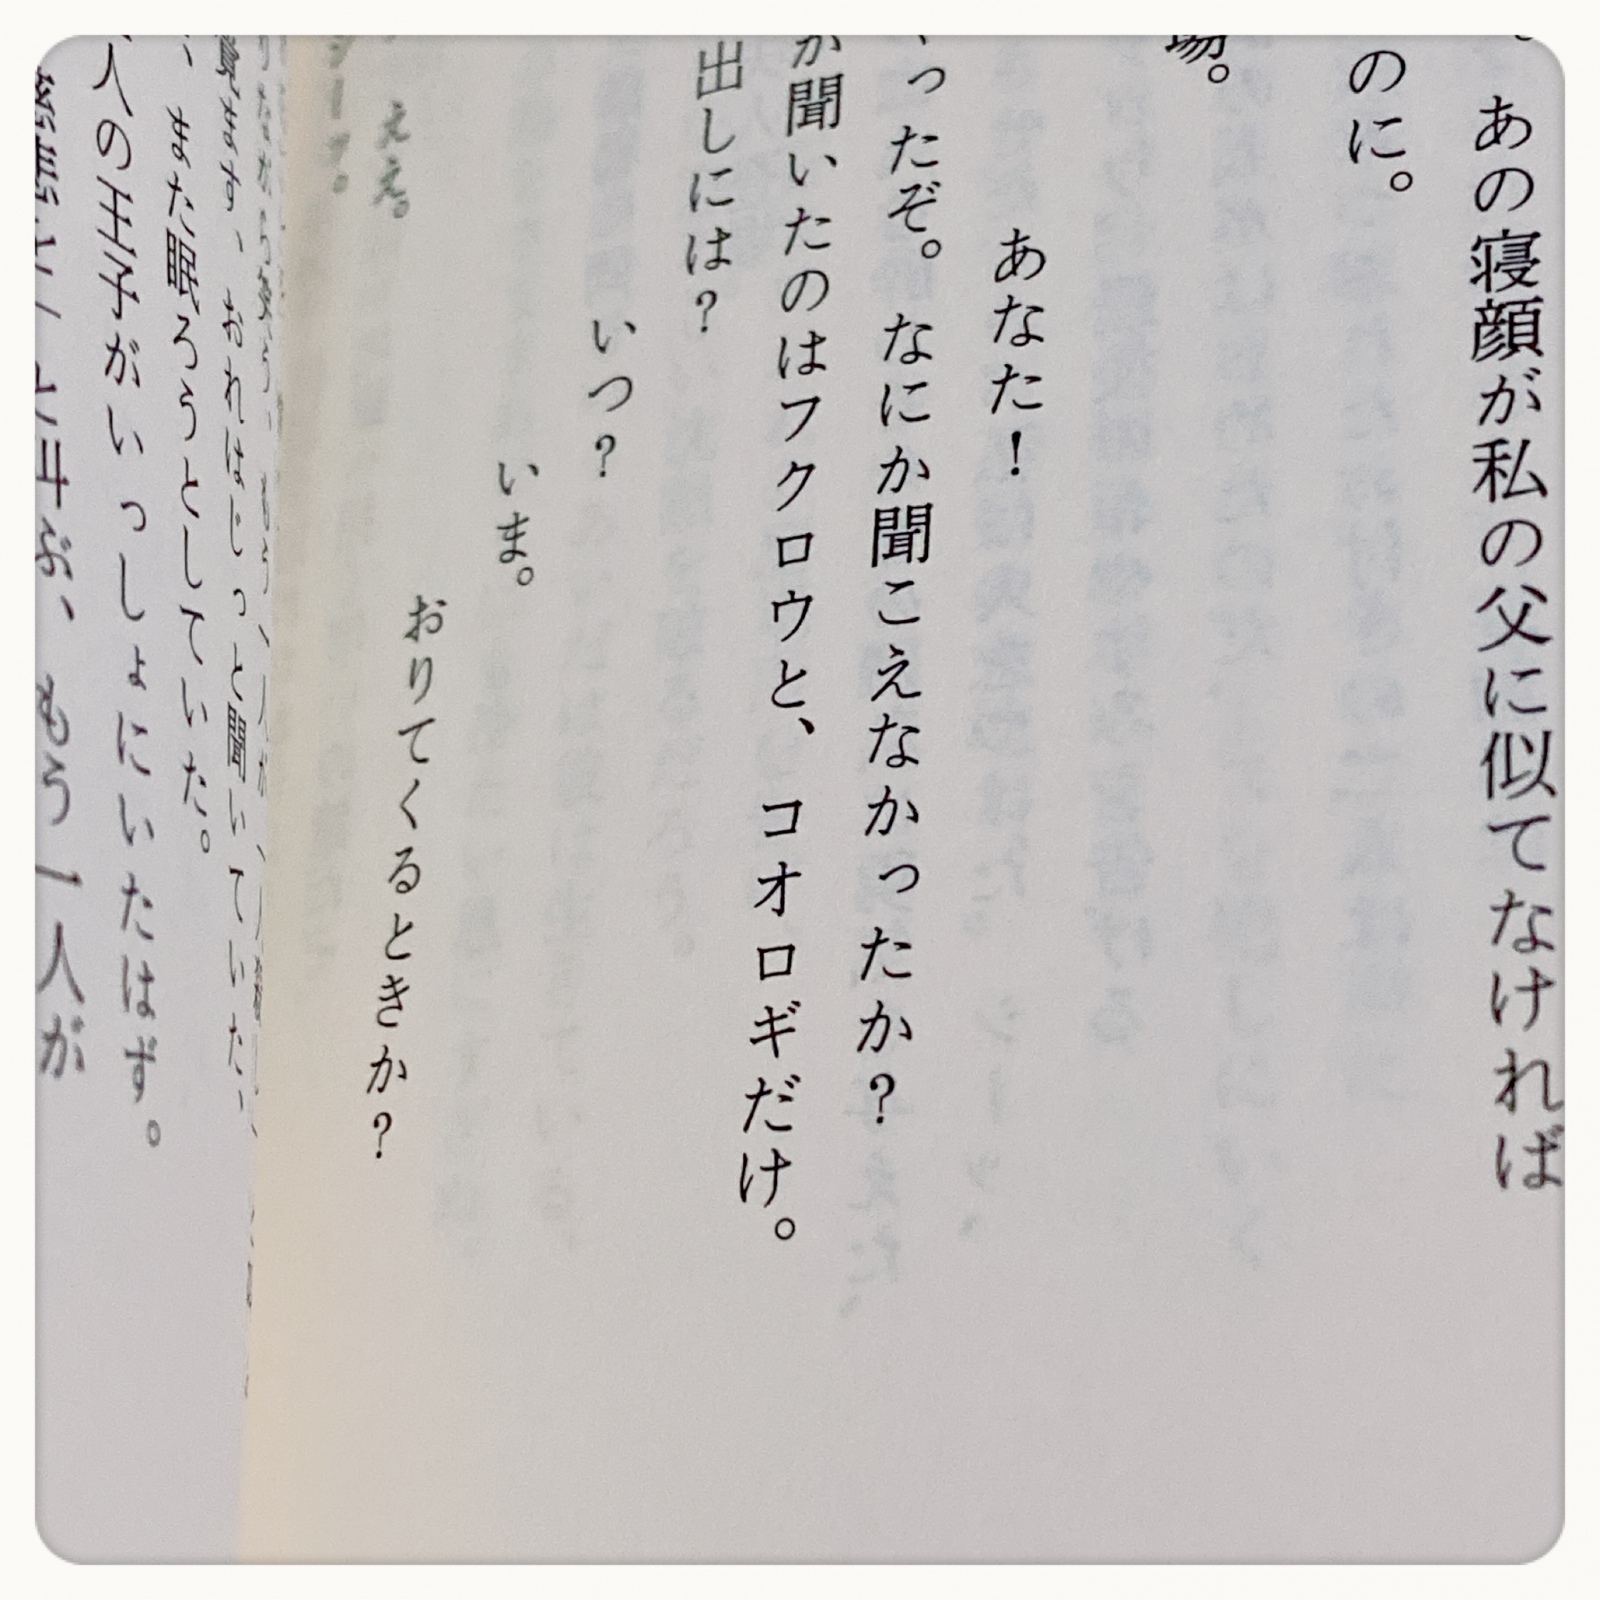 。あの寝顔が私の父に似てなければ
のに。
場。
あなた！
ったぞ。なにか聞こえなかったか？
が聞いたのはフクロウと、コオロギだけ。
出しには？
いつ？
いま。
おりてくるときか？
ええ。
おれはじっと聞いていた、
、また眠ろうとしていた。
人の王子がいっしょにいたはず。
と叫ぶ、もう一人が